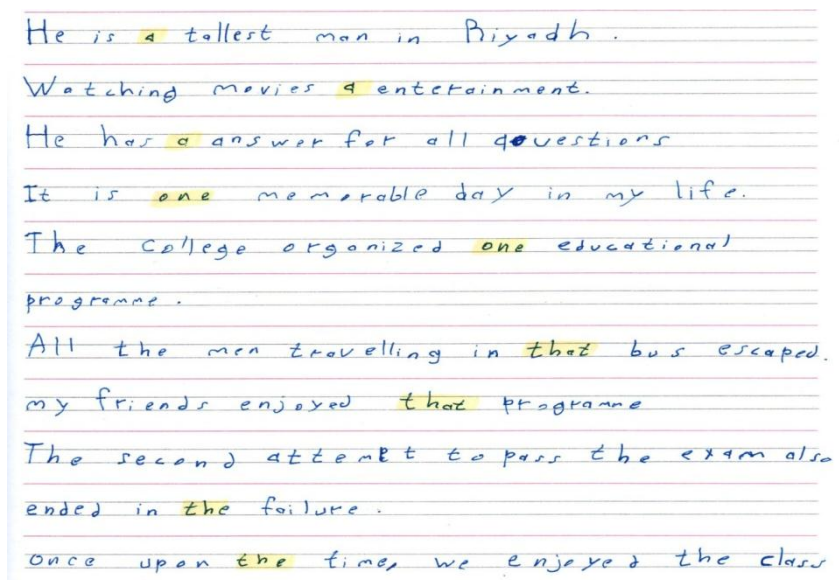 He is a tallest man in Riyadh.
Watching movies a entertainment.
He has a answer for all qouestions
It is one memorable day in my life.
The college organized one educational
programme.
All the men travelling in that bus escaped.
my friends enjoyed that programme
The second attempt to pass the exam also
ended in the failure.
Once upon the time, we enjoyed the class